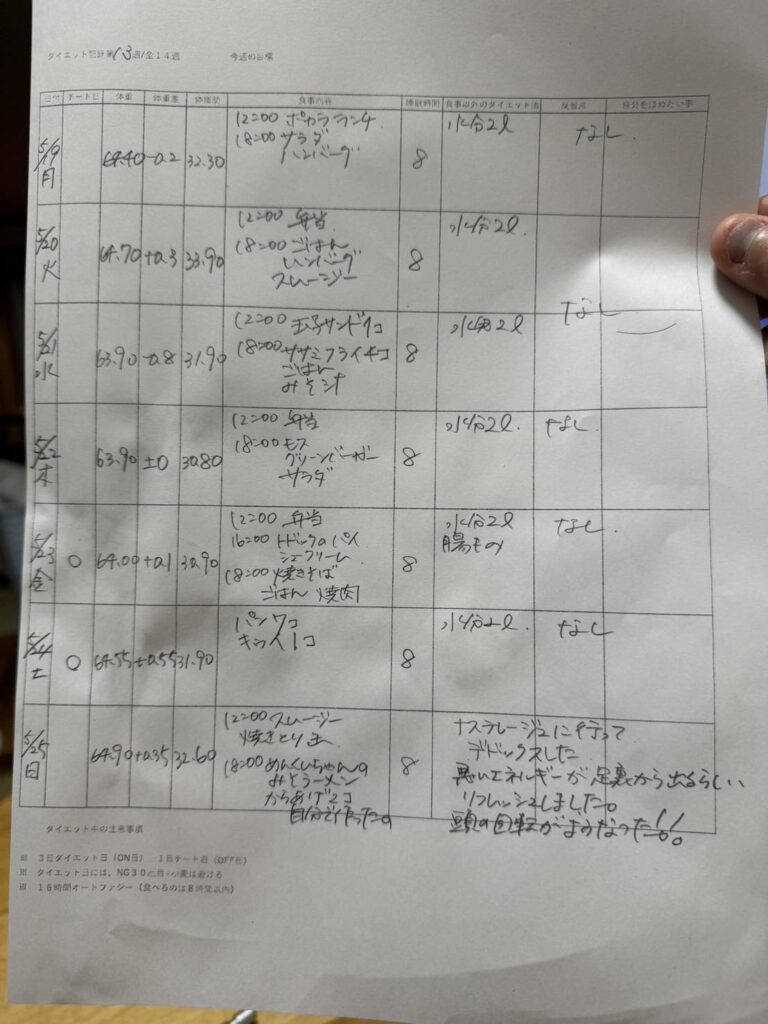 ダイエット記録第13週/全14週 今週の目標
日付 チート日 体重 体重差 体脂肪 食事内容 睡眠時間 食事以外のダイエット法 反省点 自分をほめたい事
5/19 月 64.40 -0.2 32.30 8 水分2l なし
12:00 ポカラランチ
18:00 サラダ
ハンバーグ
5/20 火 64.70 +0.3 33.90 8 水分2l
12:00 弁当
18:00 ごはん
ハンバーグ
スムージー
なし
5/21 水 63.90 -0.8 31.90 8 水分2l
12:00 玉子サンド1コ
18:00 ササミフライ4コ
ごはん
みそ汁
5/22 木 63.90 ±0 30.80 8 水分2l. なし
12:00 弁当
18:00 モス
グリーンバーガー
サラダ
5/23 金 ○ 64.00 +0.1 30.90 8 水分2l なし
腸もみ
12:00 弁当
16:00 パイ
シュークリーム
18:00 焼きそば
ごはん 焼肉
5/24 土 ○ 64.55 +0.55 31.90 8 水分2l. なし
パン7コ
1コ
5/25 日 64.90 +0.35 32.60 8
12:00 スムージー
焼きとり
18:00 めんくいちゃんの
みそラーメン
からあげ2コ
自分で作った。
に行って
デトックスした
悪いエネルギーが足裏から出るらしい
リフレッシュしました。
頭の回転がよくなった!!
ダイエット中の注意事項
※ 3日ダイエット日(ON日) 1日チート日(OFF日)
※ ダイエット日には、NG30品目・小麦は避ける
※ 16時間オートファジー(食べるのは8時間以内)